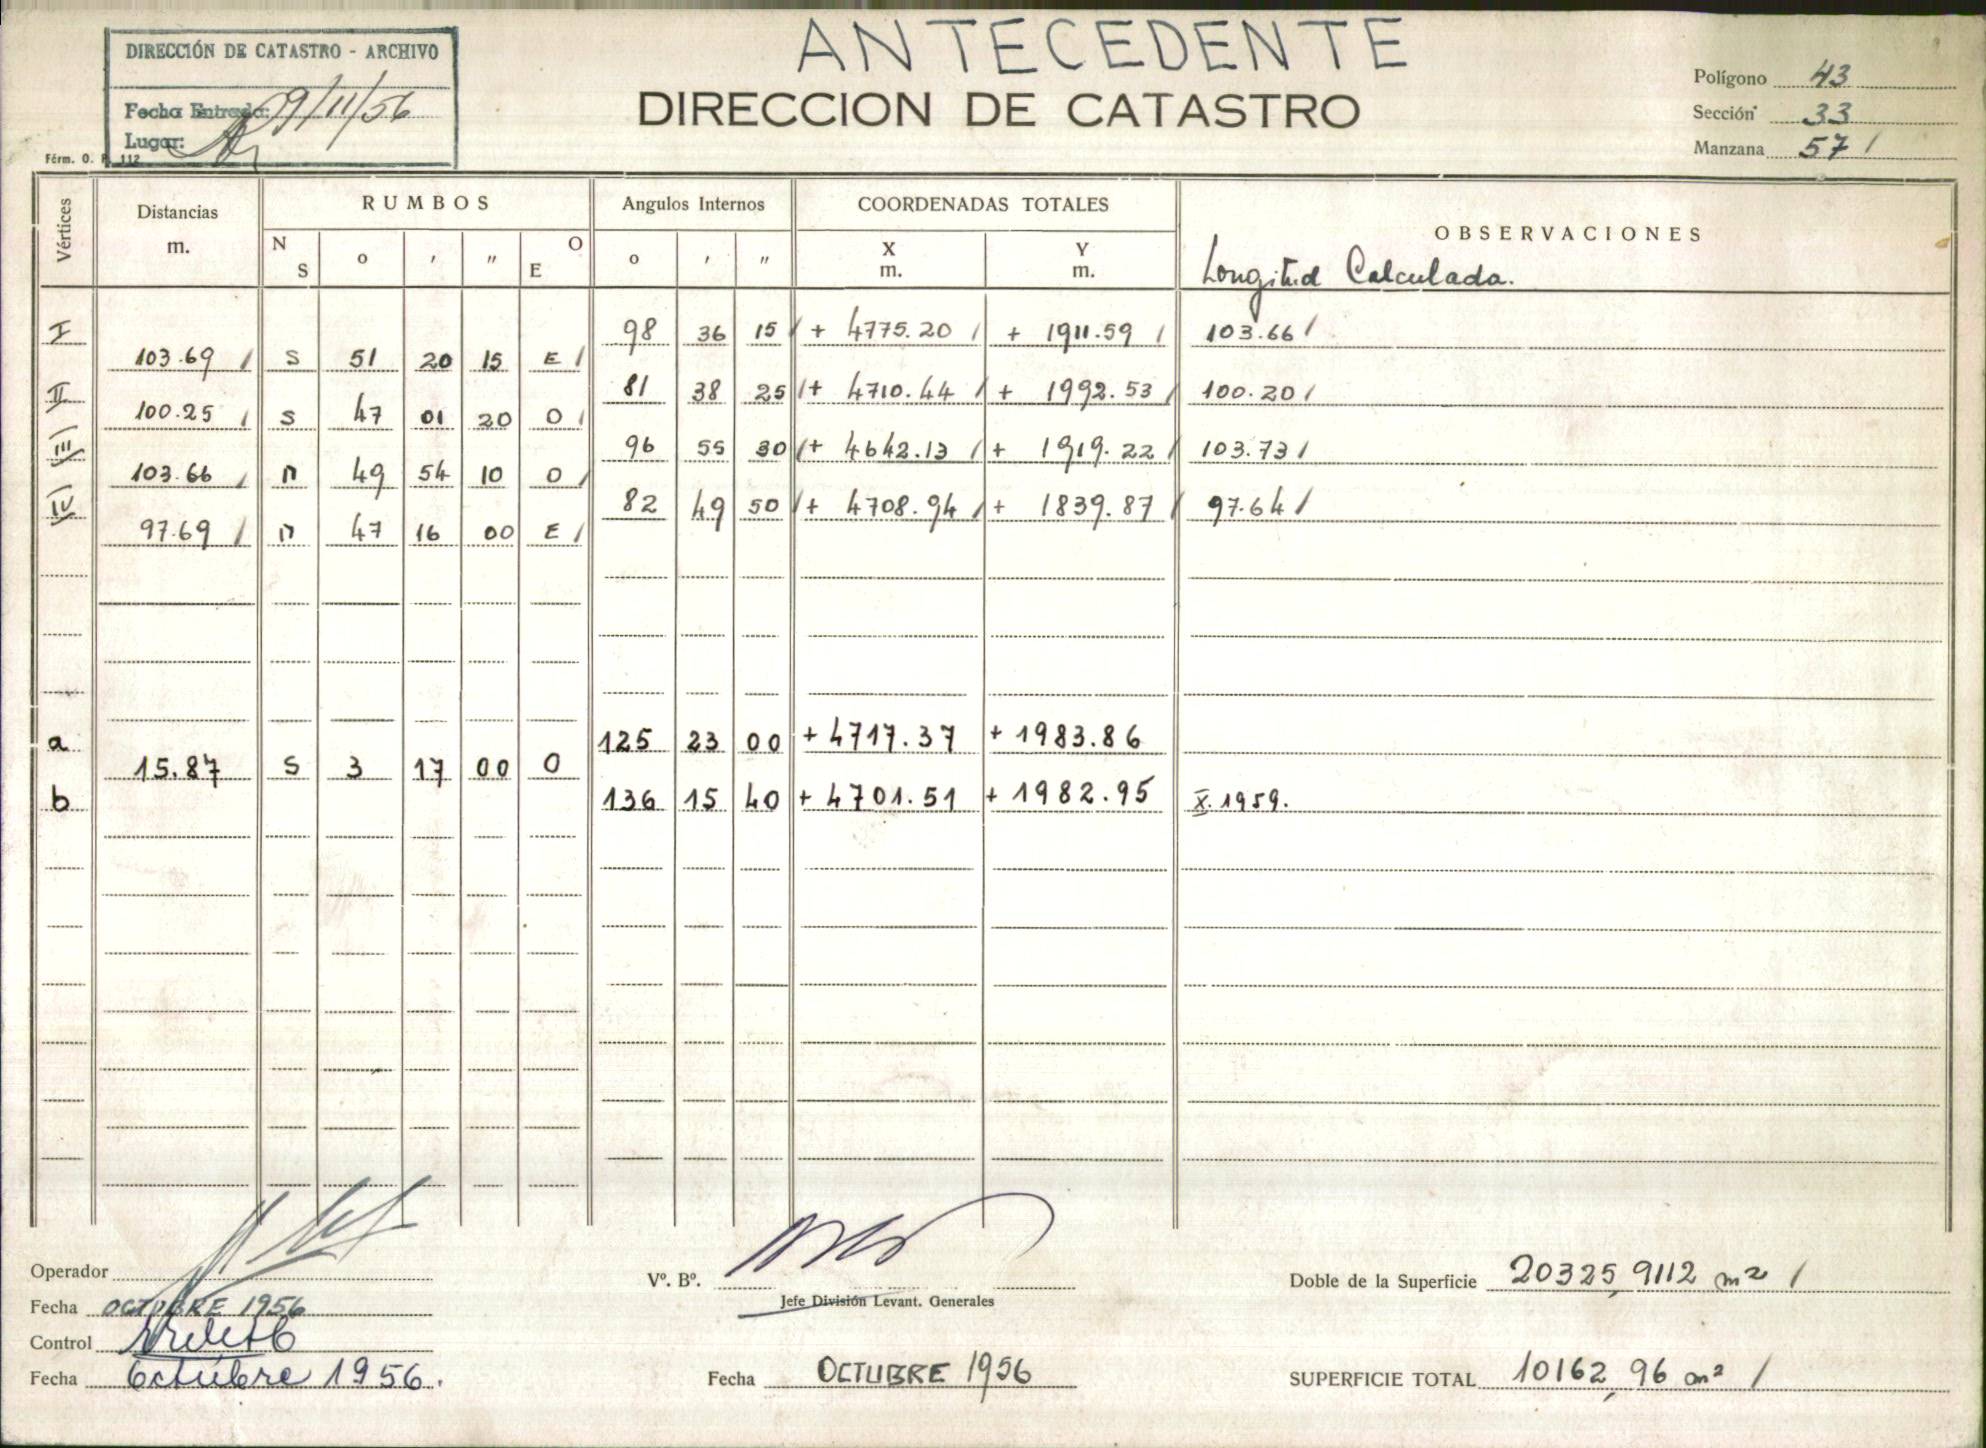 ANTECEDENTE
DIRECCIÓN DE CATASTRO - ARCHIVO
Fecha Entrada: 09/11/56
Lugar:
Fórm. O. P. 112
DIRECCION DE CATASTRO
Polígono 43
Sección 33
Manzana 57 /
Vértices Distancias m. RUMBOS Angulos Internos COORDENADAS TOTALES OBSERVACIONES
N S o ' " O E o ' " X m. Y m. Longitud Calculada.
I 98 36 15 / + 4775.20 / + 1911.59 / 103.66 /
103.69 / S 51 20 15 E /
II 81 38 25 / + 4710.44 / + 1992.53 / 100.20 /
100.25 / S 47 01 20 O /
III 96 55 30 / + 4642.13 / + 1919.22 / 103.73 /
103.66 / N 49 54 10 O /
IV 82 49 50 / + 4708.94 / + 1839.87 / 97.64 /
97.69 / N 47 16 00 E /
a 125 23 00 + 4717.37 + 1983.86
15.87 S 3 17 00 O
b 136 15 40 + 4701.51 + 1982.95 X.1959.
Operador
Fecha OCTUBRE 1956
Control
Fecha Octubre 1956.
Vº. Bº.
Jefe División Levant. Generales
Fecha OCTUBRE 1956
Doble de la Superficie 20325,9112 m2 /
SUPERFICIE TOTAL 10162,96 m² /